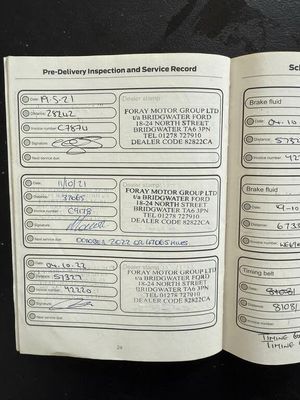 Pre-Delivery Inspection and Service Record
Date: 19.5.21
Distance: 28242
Invoice number: C7874
Signature:
Next service due:
Dealer stamp:
FORAY MOTOR GROUP LTD
t/a BRIDGWATER FORD
18-24 NORTH STREET
BRIDGWATER TA6 3PN
TEL 01278 727910
DEALER CODE 82822CA
Date: 11/10/21
Distance: 37065
Invoice number:
Signature:
Next service due: OCTOBER 2022 OR 47065 MILES
FORAY MOTOR GROUP LTD
t/a BRIDGWATER FORD
18-24 NORTH STREET
BRIDGWATER TA6 3PN
TEL 01278 727910
DEALER CODE 82822CA
Date: 04.10.22
Distance: 51327
Invoice number: 42220
Signature:
Next service due:
FORAY MOTOR GROUP LTD
t/a BRIDGWATER FORD
18-24 NORTH STREET
BRIDGWATER TA6 3PN
TEL 01278 727910
DEALER CODE 82822CA
24
Brake fluid
Date:
04.10
Distance:
Invoice number
Brake fluid
Date:
Distance:
Invoice number
Timing belt
Date:
Distance:
Invoice number
TIMING
TIMING